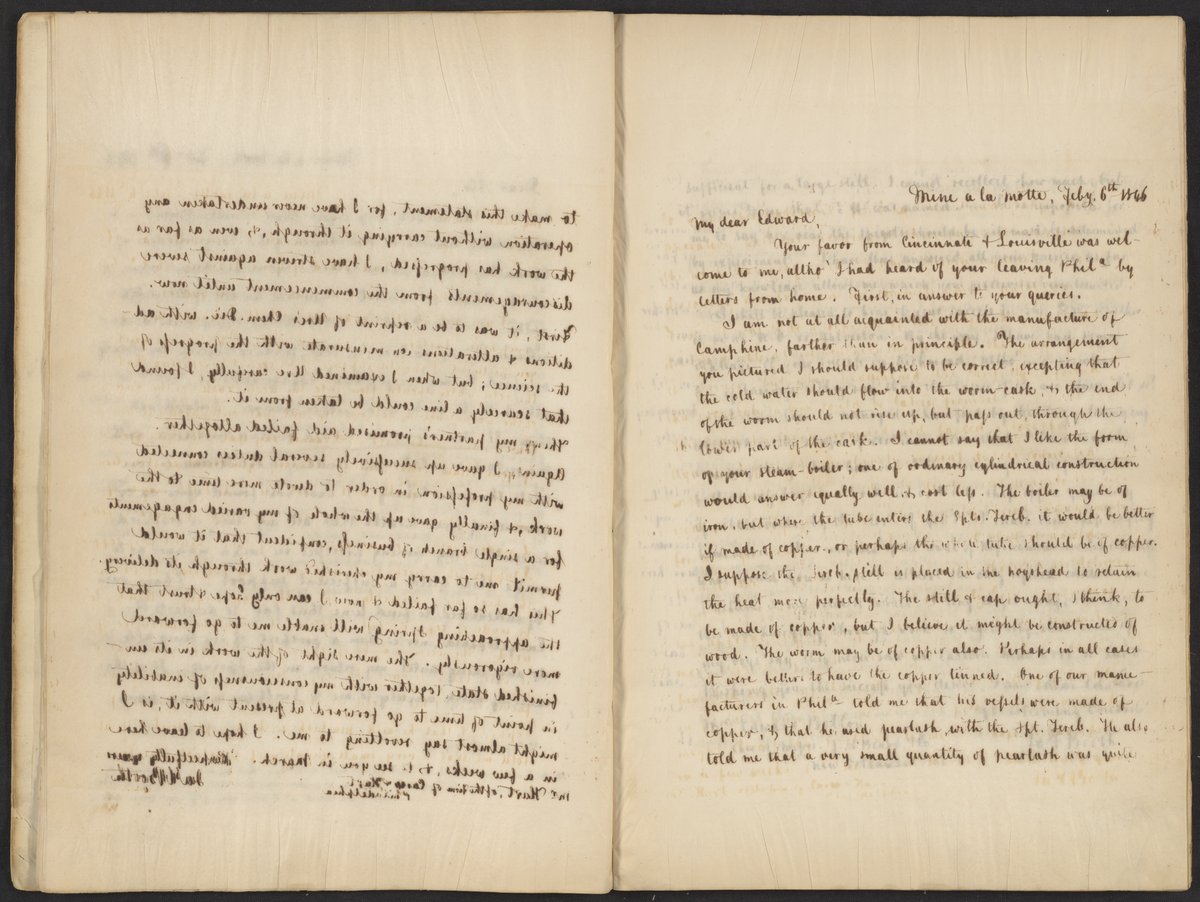 to make this statement, for I have never undertaken any
operation without carrying it through, &, even as far as
the work has progressed, I have striven against severe
discouragements from the commencement until now.
First, it was to be a reprint of Ure's Chem. Dic. with ad-
ditions & alterations commensurate with the progress of
the science; but when I examined Ure carefully, I found
that scarcely a line could be taken from it.
my partner's promised aid failed altogether.
Again, I gave up successively several duties connected
with my profession in order to devote more time to the
work, & finally gave up the whole of my varied engagements
for a single branch of business, confident that it would
permit me to carry my cherished work through to delivery.
This has so far failed & now I can only hope & trust that
the approaching Spring will enable me to go forward
more vigorously. The mere sight of the work in its un-
finished state, together with my consciousness of inability
in point of time to go forward at present with it, is I
might almost say revolting to me. I hope to leave here
in a few weeks, & to see you in March. Respectfully yours
Booth
Mr Hart, of the firm of Carey & Hart
Philadelphia
Mine a la Motte, Feby. 6th 1846
My dear Edward,
Your favor from Cincinnati & Louisville was wel-
come to me, altho' I had heard of your leaving Phila by
letters from home. First, in answer to your queries.
I am not at all acquainted with the manufacture of
Camphine, farther than in principle. The arrangement
you pictured I should suppose to be correct, excepting that
the cold water should flow into the worm-cask, & the end
of the worm should not rise up, but pass out, through the
lower part of the cask. I cannot say that I like the form
of your steam-boiler; one of ordinary cylindrical construction
would answer equally well & cost less. The boiler may be of
iron, but where the tube enters the Spts. Tereb. it would be better
if made of copper, or perhaps the whole tube should be of copper.
I suppose the Tereb. still is placed in the hogshead to retain
the heat more perfectly. The still & cap ought, I think, to
be made of copper, but I believe it might be constructed of
wood. The worm may be of copper also. Perhaps in all cases
it were better to have the copper tinned. One of our manu-
facturers in Phila told me that his vessels were made of
copper, & that he used pearlash with the Spt. Tereb. He also
told me that a very small quantity of pearlash was quite